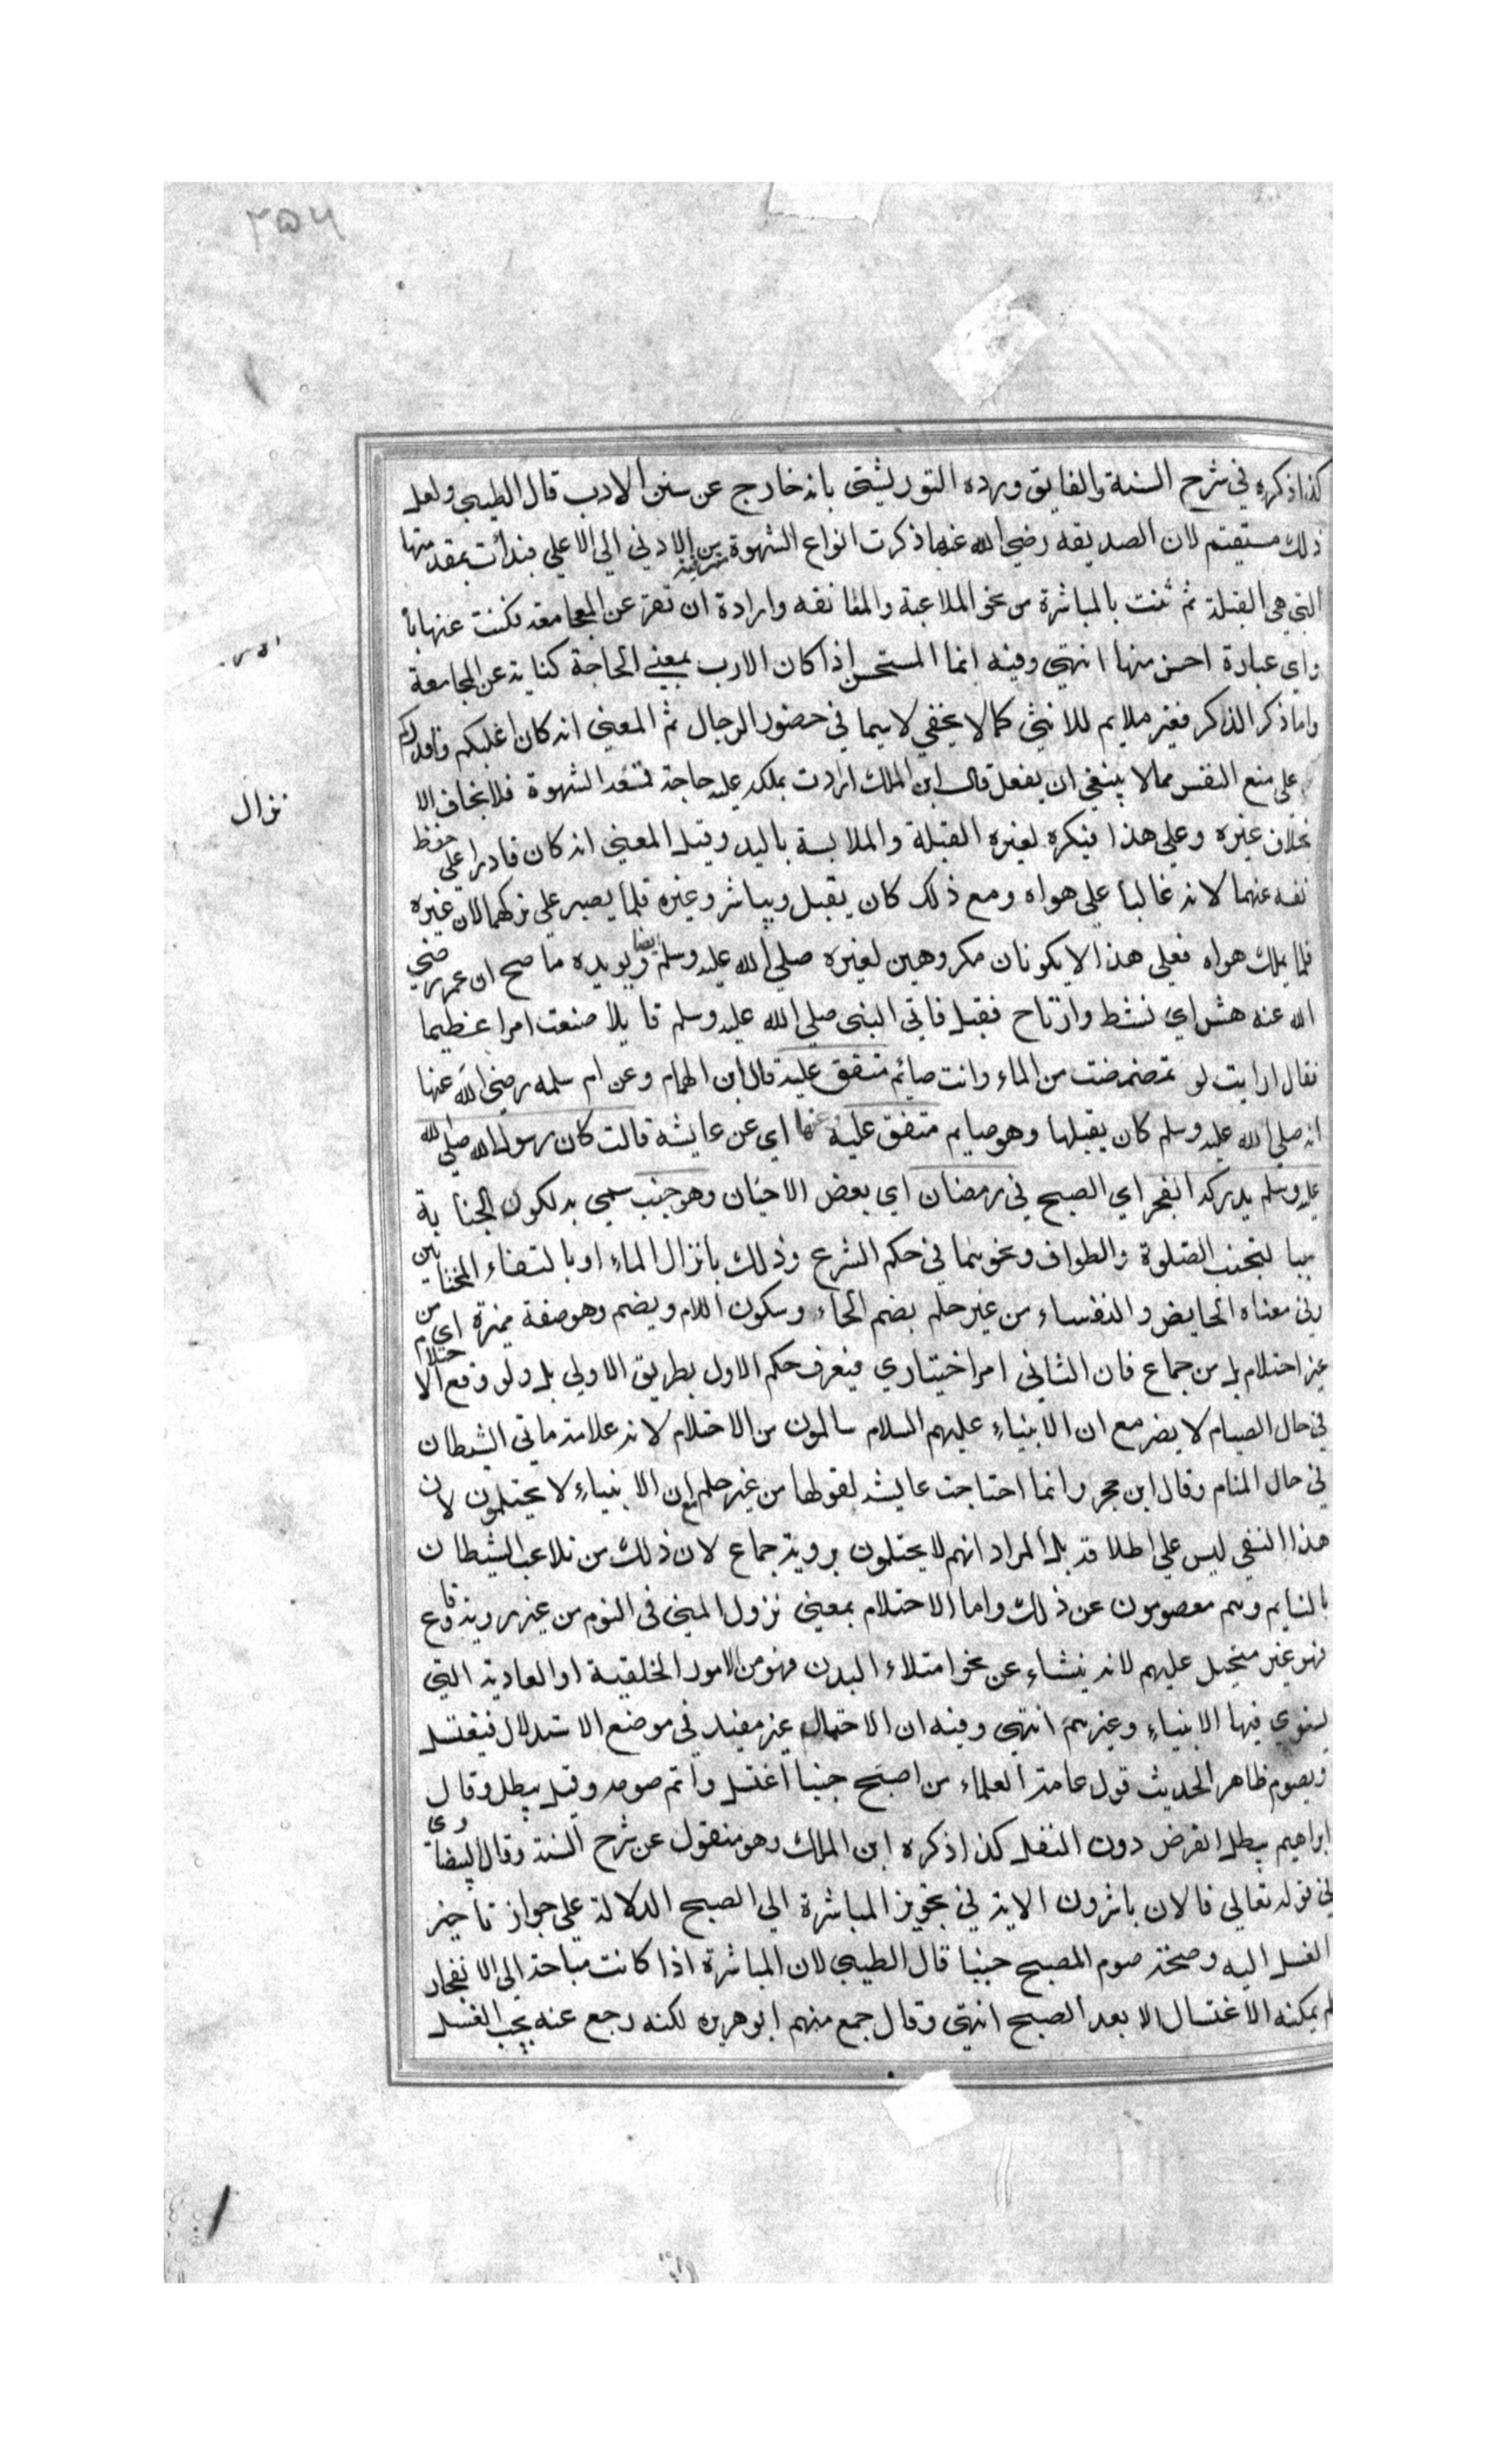 ٢٥٦
كذا ذكره في شرح السنة والفايق ورده التوربشتي بانه خارج عن سنن الادب قال الطيبي ولعل
ذلك مستقيم لان الصديقه رضي الله عنها ذكرت انواع الشهوة مترقية من الادني الي الاعلي فبدأت بمقدمتها
التي هي القبلة ثم ثنت بالمباشرة من نحو الملاعبة والمعانقه وارادة ان تعبر عن المجامعة فكنت عنها بالارب
واي عبارة احسن منها انتهي وفيه انما المستحسن اذا كان الارب بمعني الحاجة كناية عن المجامعة
واما ذكر الذاكر فغير ملايم للانثي كما لا يخفي لاسيما في حضور الرجال ثم المعني انه كان اغلبكم واقدركم
علي منع النفس مما لا ينبغي ان يفعل قال ابن الملك ارادت بملكه عليه حاجته قمعه الشهوة فلا يخاف الا
نزال
بخلاف غيره وعلي هذا فيكره لغيره القبلة والملابسة باليد وقيل المعني انه كان قادرا علي حفظ
نفسه عنهما لانه غالبا علي هواه ومع ذلك كان يقبل ويباشر وغيره قلما يصبر علي تركهما لان غيره
قلما يملك هواه فعلي هذا لا يكونان مكروهين لغيره صلي الله عليه وسلم ايضا ويويده ما صح ان عمر رضي
الله عنه هش اي نشط وارتاح فقبل فاتي النبي صلي الله عليه وسلم قايلا صنعت امرا عظيما
فقال ارايت لو تمضمضت من الماء وانت صائم متفق عليه قال ابن الهمام وعن ام سلمه رضي الله عنها
انه صلي الله عليه وسلم كان يقبلها وهو صايم متفق عليه عنها اي عن عايشه قالت كان رسول الله صلي الله
عليه وسلم يدركه الفجر اي الصبح في رمضان اي بعض الاحيان وهو جنب سمي به لكون الجنابة
سببا لتجنب الصلوة والطواف ونحوهما في حكم الشرع وذلك بانزال الماء او بالتقاء الختانين
وفي معناه الحايض والنفساء من غير حلم بضم الحاء وسكون اللام ويضم وهو صفة مميزة اي من
غير احتلام بل من جماع فان الثاني امر اختياري فيعرف حكم الاول بطريق الاولي بل ولو وقع الاحتلام
في حال الصيام لا يضر مع ان الانبياء عليهم السلام سالمون من الاحتلام لانه علامة ماتي الشيطان
في حال المنام وقال ابن حجر وانما احتاجت عايشه لقولها من غير حلم مع ان الانبياء لا يحتلمون لان
هذا النفي ليس علي اطلاقه بل المراد انهم لا يحتلمون بروية جماع لان ذلك من تلاعب الشيطان
بالنايم وهم معصومون عن ذلك واما الاحتلام بمعني نزول المني في النوم من غير روية وقاع
فهو غير مستحيل عليهم لانه ينشاء عن نحو امتلاء البدن فهو من الامور الخلقية او العادية التي
يستوي فيها الانبياء وغيرهم انتهي وفيه ان الاحتمال غير مفيد في موضع الاستدلال فيغتسل
ويصوم ظاهر الحديث قول عامة العلماء من اصبح جنبا اغتسل واتم صومه وقيل يبطل وقال
ابراهيم يبطل الفرض دون النفل كذا ذكره ابن الملك وهو منقول عن شرح السنة وقال البيضاوي
في قوله تعالي فالان باشروهن الاية في تجويز المباشرة الي الصبح الدلالة علي جواز تاخير
الغسل اليه وصحة صوم المصبح جنبا قال الطيبي لان المباشرة اذا كانت مباحة الي الانفجار
لم يمكنه الاغتسال الا بعد الصبح انتهي وقال جمع منهم ابو هريره لكنه رجع عنه يجب الغسل